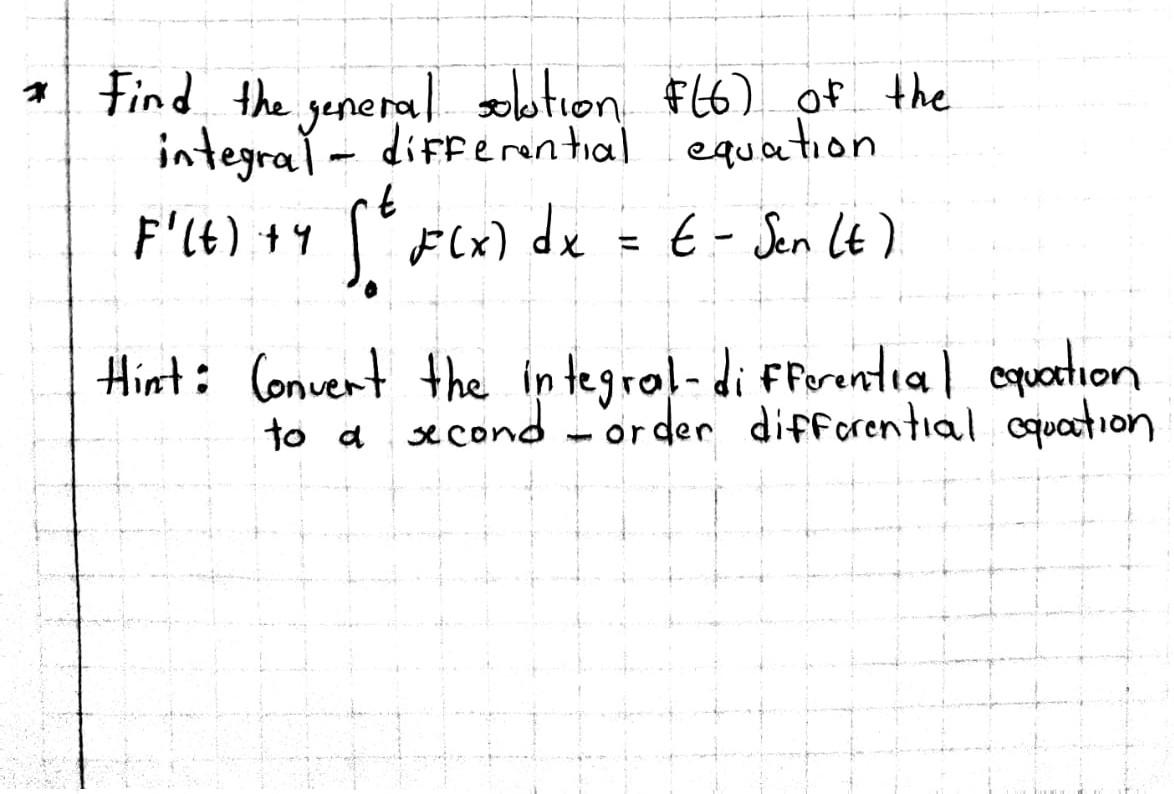 * Find the general solution F(t) of the
integral - differential equation
F'(t) + 4 ∫₀ᵗ F(x) dx = t - Sen (t)
Hint: Convert the integral-differential equation
to a second - order differential equation